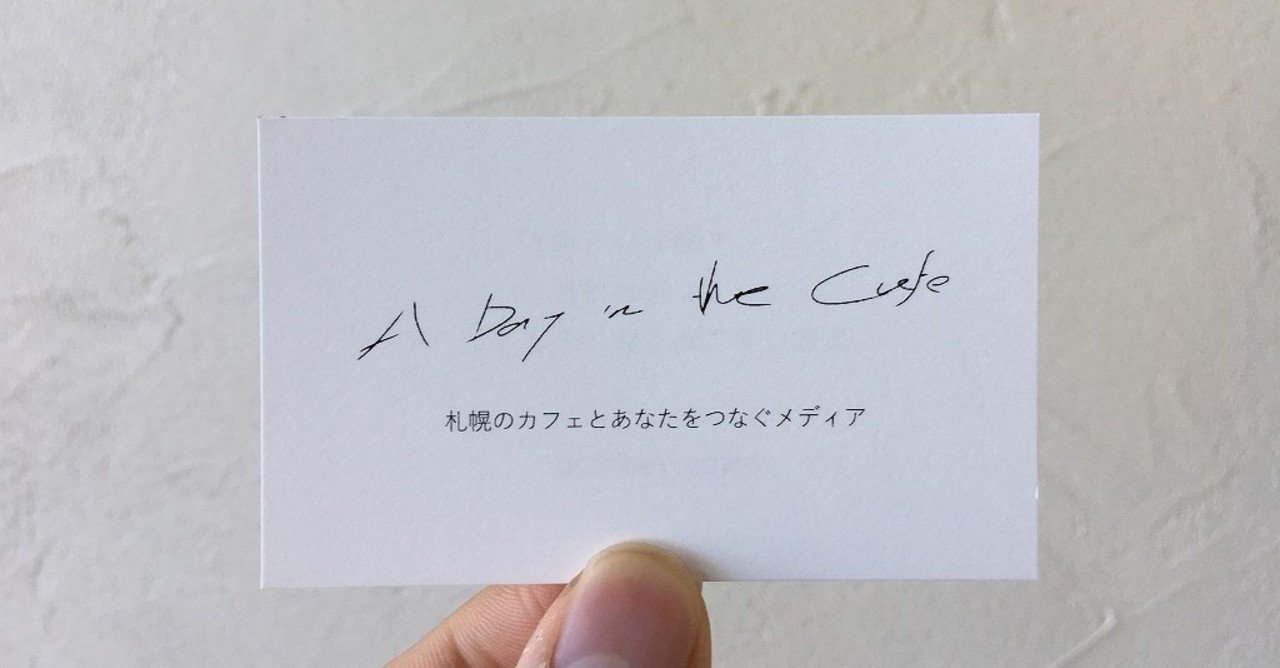 A Day in the Cafe
札幌のカフェとあなたをつなぐメディア